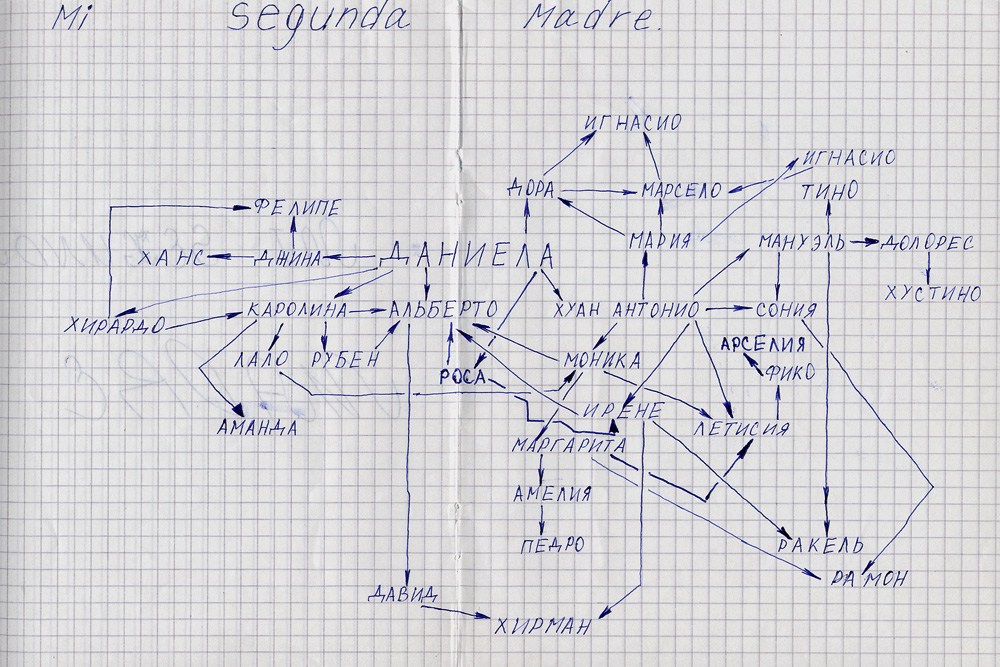 Mi segunda Madre.
ИГНАСИО
ИГНАСИО
ДОРА МАРСЕЛО ТИНО
ФЕЛИПЕ
МАРИЯ МАНУЭЛЬ ДОЛОРЕС
ХАНС ДЖИНА ДАНИЕЛА
ХУСТИНО
КАРОЛИНА АЛЬБЕРТО ХУАН АНТОНИО СОНИЯ
ХИРАРДО
АРСЕЛИЯ
ЛАЛО РУБЕН МОНИКА
РОСА ФИКО
ИРЕНЕ
АМАНДА ЛЕТИСИЯ
МАРГАРИТА
АМЕЛИЯ
ПЕДРО РАКЕЛЬ
РАМОН
ДАВИД
ХИРМАН